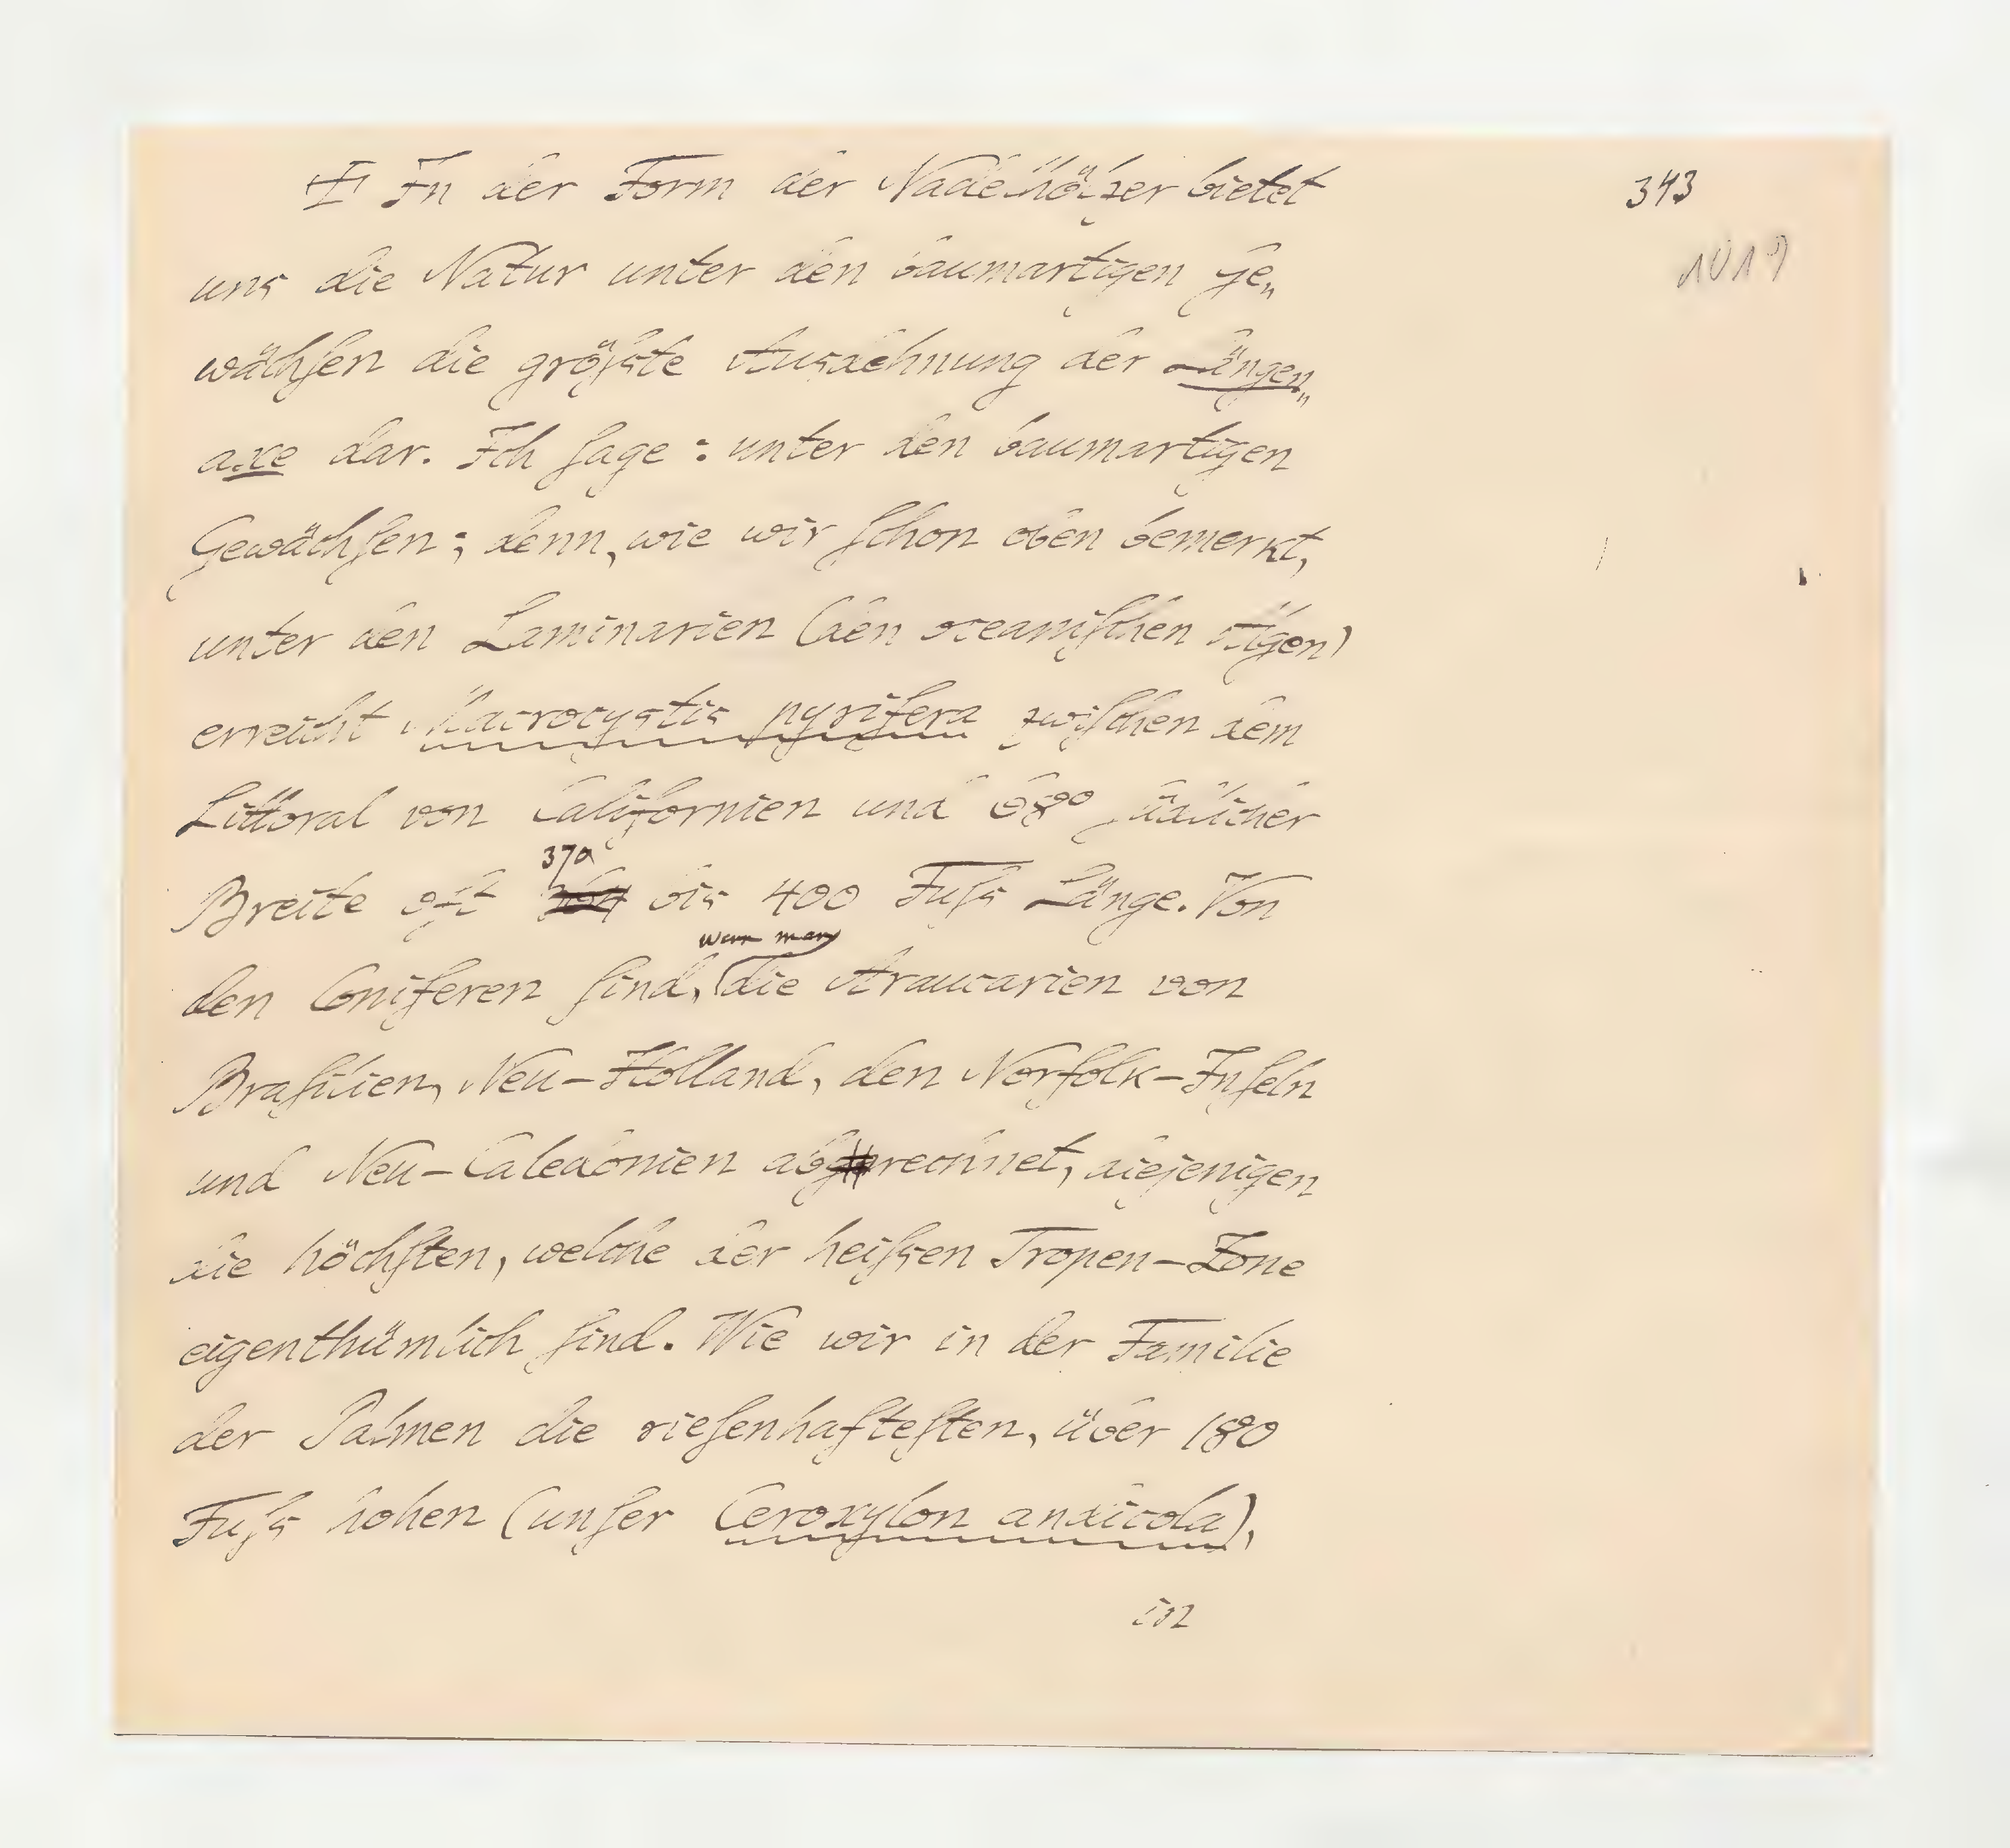 In der Form der Nadelhölzer bietet
343
1019
uns die Natur unter den baumartigen Ge„
wächsen die größte Ausdehnung der Längen„
axe dar. Ich sage: unter den baumartigen
Gewächsen; denn, wie wir schon oben bemerkt,
unter den Laminarien (den oceanischen Algen)
erreicht Macrocystis pyrifera zwischen dem
Littoral von Californien und 68° südlicher
370
Breite oft bis 400 Fuß Länge. Von
wenn man
den Coniferen sind, die Araucarien von
Brasilien, Neu-Holland, den Norfolk-Inseln
und Neu-Caledonien abrechnet, diejenigen
die höchsten, welche der heißen Tropen-Zone
eigenthümlich sind. Wie wir in der Familie
der Palmen die riesenhaftesten, über 180
Fuß hohen (unser Ceroxylon andicola),